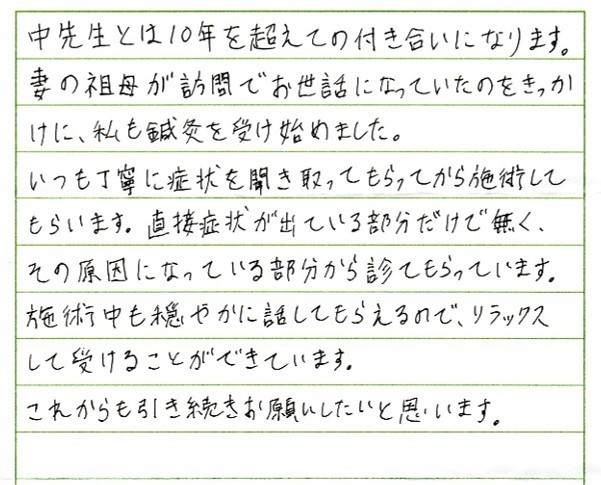 中先生とは10年を超えての付き合いになります。
妻の祖母が訪問でお世話になっていたのをきっか
けに、私も鍼灸を受け始めました。
いつも丁寧に症状を聞き取ってもらってから施術して
もらいます。直接症状が出ている部分だけで無く、
その原因になっている部分から診てもらっています。
施術中も穏やかに話してもらえるので、リラックス
して受けることができています。
これからも引き続きお願いしたいと思います。